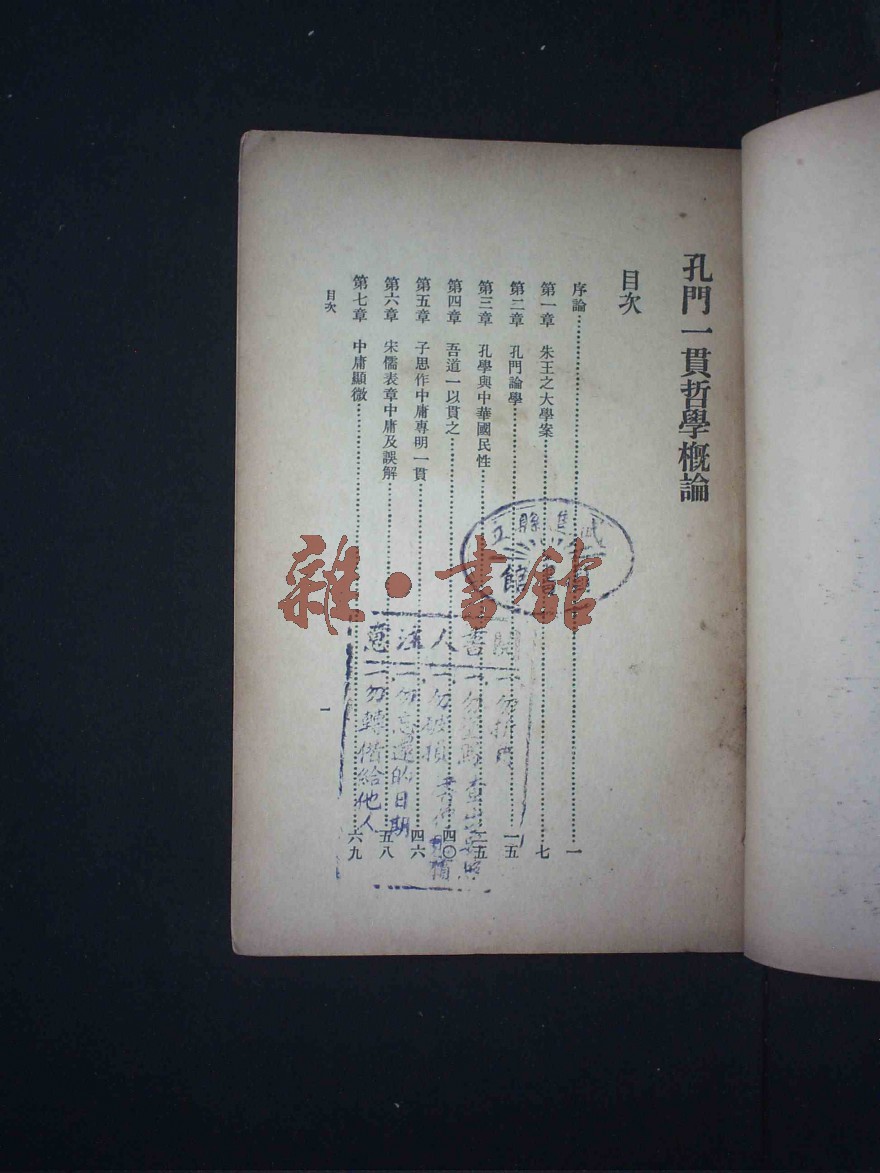 孔門一貫哲學概論
目次
序論……一
第一章　朱王之大學案……七
第二章　孔門論學……一五
第三章　孔學與中華國民性……二五
第四章　吾道一以貫之……四〇
第五章　子思作中庸專明一貫……四六
第六章　宋儒表章中庸及誤解……五八
第七章　中庸顯微……六九
目次
一
武進縣立
館
雜·書館
閱書人注意
一勿折
一勿
一勿破損
一勿忘還的日期
一勿轉借給他人